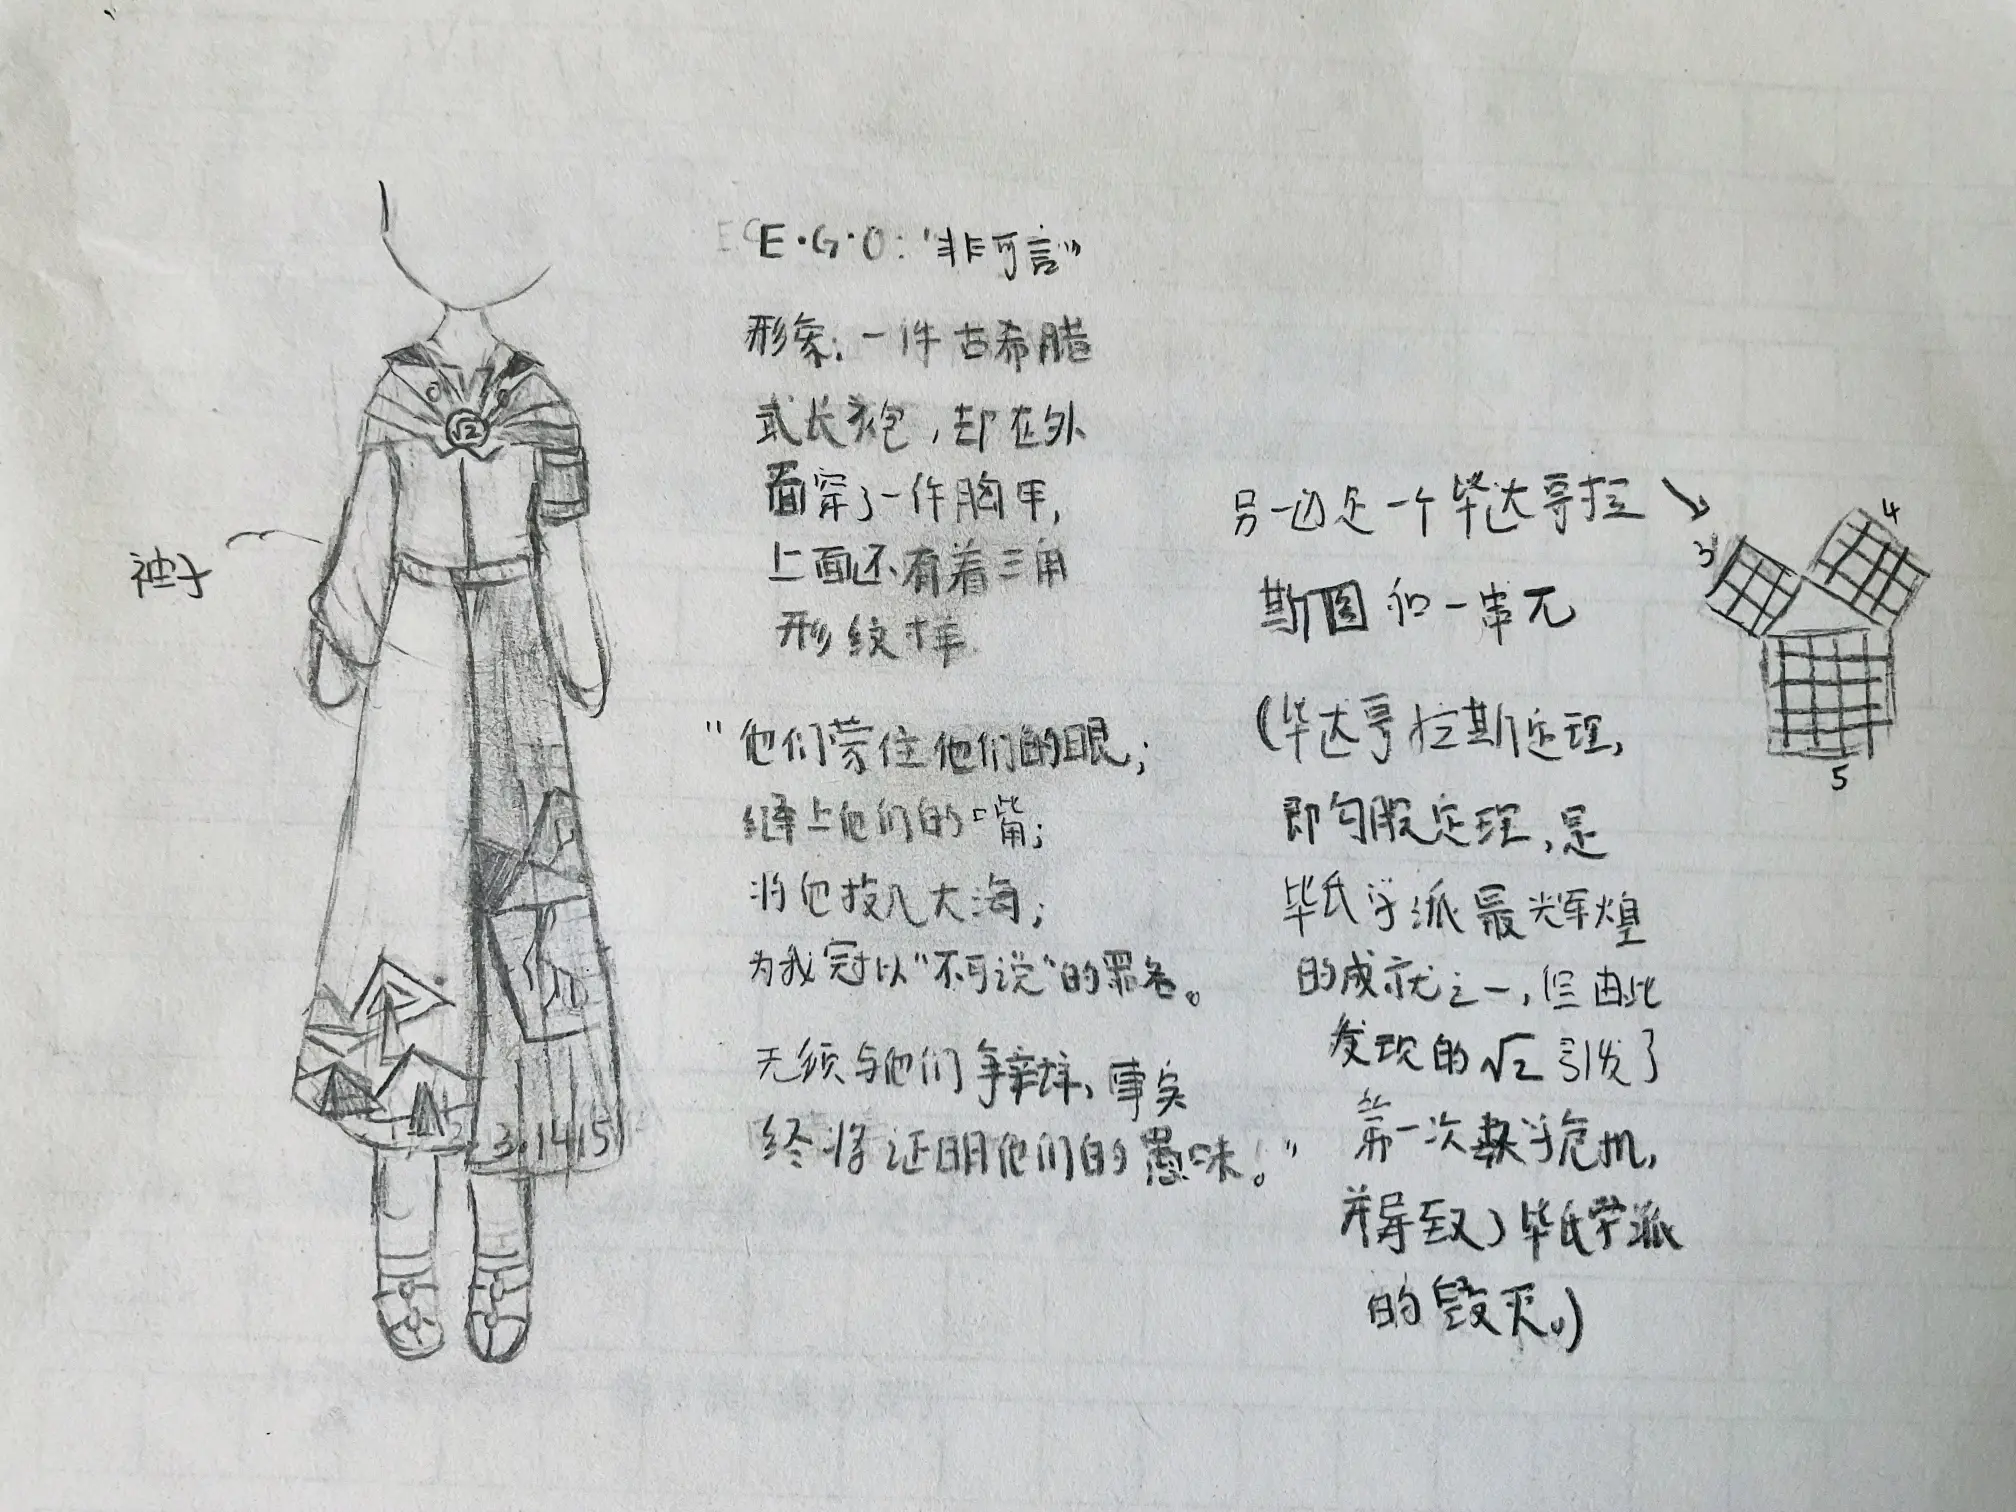 E·G·O："非可言"
形象：一件古希腊
式长袍，却在外
面穿了一件胸甲，
上面还有着三角
形纹样
"他们蒙住他们的眼；
缝上他们的嘴；
将他投入大海；
为我冠以"不可说"的罪名。
无须与他们争辩，事实
终将证明他们的愚昧。"
袖子
√2
3.1415
另一边是一个毕达哥拉
斯图和一串π
(毕达哥拉斯定理，
即勾股定理，是
毕氏学派最辉煌
的成就之一，但由此
发现的√2引发了
第一次数学危机，
并导致了毕氏学派
的毁灭。)
3
4
5